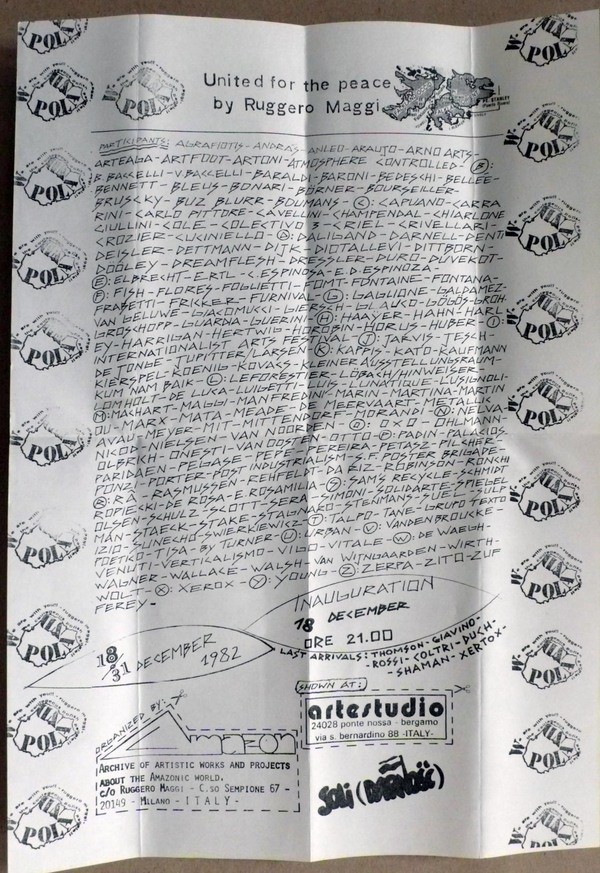 United for the peace
by Ruggero Maggi
PARTICIPANTS: AGRAFIOTIS - ANDRÁS - ANLEO - ARAUJO - ARNO ARTS -
ARTEAGA - ARTFOOT - ARTONI - ATMOSPHERE CONTROLLED - B:
B. BACCELLI - V. BACCELLI - BARALDI - BARONI - BEDESCHI - BELLEE-
BENNETT - BLEUS - BONARI - BÖRNER - BOURSEILLER -
BRUSCKY - BUZ BLURR - BOUMANS - C: CAPUANO - CARRA
RINI - CARLO PITTORE - CAVELLINI - CHAMPENDAL - CHIARLONE
CIULLINI - COLE - COLECTIVO 3 - CRIEL - CRIVELLARI -
CROZIER - CUCINIELLO - D: DALIGAND - DARNELL - DENTI
DEISLER - DETTMANN - DITK - DIOTALLEVI - DITTBORN -
DOOLEY - DREAMFLESH - DRESSLER - DURO - DUVEKOT -
E: ELBRECHT - ERTL - C. ESPINOSA - E.D. ESPINOZA -
F: FISH - FLORES - FOGLIETTI - FOMT - FONTAINE - FONTANA -
FRABETTI - FRICKER - FURNIVAL - G: GAGLIONE - GALDAMEZ -
VAN GELUWE - GIACOMUCCI - GIERSCH - GLAUKO - GÖGÖS - GROH
GROSCHOPP - GUARNA - GUERINI - H: HAAYER - HAHN - HARL
EY - HARRIGAN - HERTWIG - HOROBIN - HORUS - HUBER - I:
INTERNATIONALIST ARTS FESTIVAL - J: JARVIS - JESCH -
DE JONGE - JUPITTER/LARSEN - K: KAPPIS - KATO - KAUFMANN
KIERSPEL - KOENIG - KOVACS - KLEINER AUSSTELLUNGSRAUM -
KUM NAM BAIK - L: LEFORESTIER - LÖBACHHINWEISER -
LOMHOLT - DE LUCA - LUIGETTI - LUIS - LUNATIQUE - LUSIGNOLI -
M: MACHART - MAGGI - MANFREDINI - MARIN - MARTINA - MARTIN
OU - MARX - MATA - MEADE - DE MEERVAART - METALLIC
AVAU - MEYER - MIT - MITTENDORF - MORANDI - N: NELVA -
NICOD - NIELSEN - VAN NOORDEN - O: OXO - OHLMANN -
OLBRICH - ONESTI - VAN OOSTEN - OTTO - P: PADIN - PALACIOS
PARIDAEN - PEGASE - PEPE - PEREIRA - PETASZ - PILCHER -
PONZI - PORTER - POST INDUSTRIALISM - S.F. POSTER BRIGADE -
R: RA - RASMUSSEN - REHFELDT - DA RIZ - ROBINSON - RONCHI
ROPIECKI - DE ROSA - E. ROSAMILIA - S: SAM'S RECYCLE - SCHMIDT
OLSEN - SCHULZ - SCOTT - SERA - SIMONI - SOLIDARTE - SPIEGEL
MAN - STAECK - STAKE - STAGNARO - STENMANS - SUEL - SULP
IZIO - SUNECHO - SWIERKIEWICZ - T: TALPO - TANE - GRUPO TEXTO
POETICO - TISA - BY TURNER - U: URBAN - V: VANDENBROUCKE -
VENUTI - VERTICALISMO - VIGO - VITALE - W: DE WAEGH -
WAGNER - WALLACE - WALSH - VAN WIJNGAARDEN - WIRTH -
WOLT - X: XEROX - Y: YOUNG - Z: ZERPA - ZITO - ZUF
FEREY -
INAUGURATION
18 DECEMBER
ORE 21.00
18/31 DECEMBER 1982
LAST ARRIVALS: THOMSON - GIAVINO -
- ROSSI - COLTRI - DUCH -
- SHAMAN - XERTOX -
SHOWN AT:
artestudio
24028 ponte nossa - bergamo
via s. bernardino 88 - ITALY -
ORGANIZED BY:
AMAZON
ARCHIVE OF ARTISTIC WORKS AND PROJECTS
ABOUT THE AMAZONIC WORLD.
C/O RUGGERO MAGGI - C.SO SEMPIONE 67 -
20149 - MILANO - ITALY -
Soli (DARNOŚĆ)